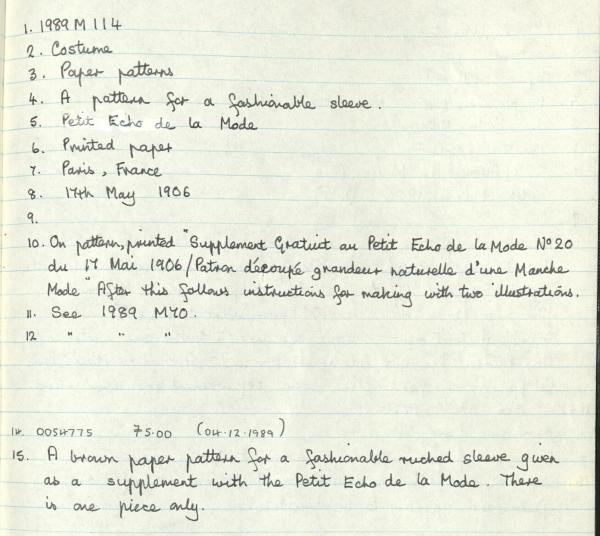 1. 1989 M 114
2. Costume
3. Paper patterns
4. A pattern for a fashionable sleeve.
5. Petit Echo de la Mode
6. Printed paper
7. Paris, France
8. 17th May 1906
9.
10. On pattern, printed "Supplement Gratuit au Petit Echo de la Mode No 20
du 17 Mai 1906/Patron découpé grandeur naturelle d'une Manche
Mode" After this follows instructions for making with two illustrations.
11. See 1989 M70.
12 " " "
14. 0054775 75.00 (04.12.1989)
15. A brown paper pattern for a fashionable ruched sleeve given
as a supplement with the Petit Echo de la Mode. There
is one piece only.